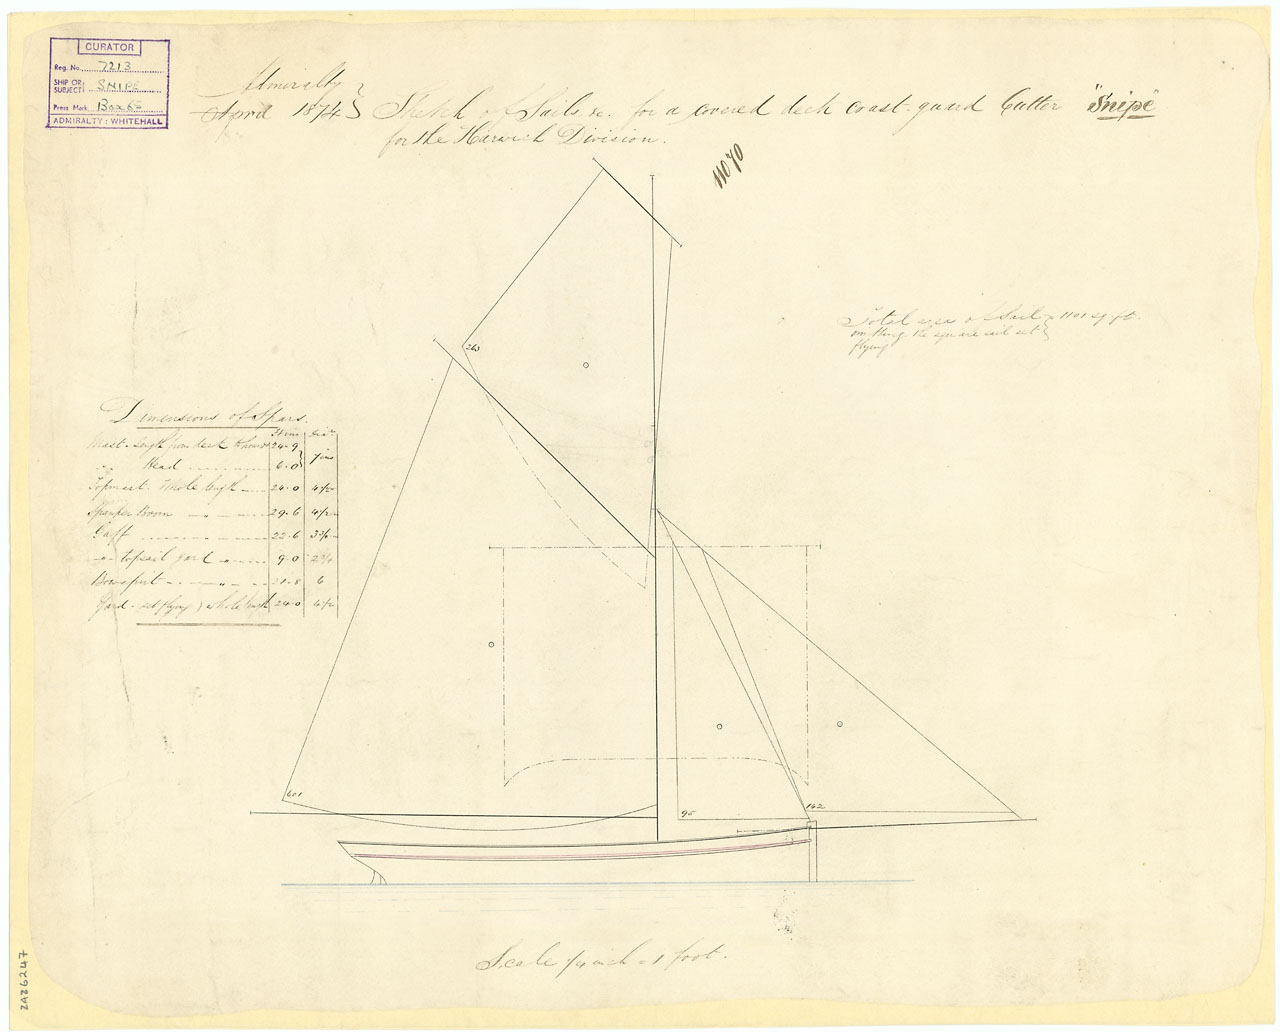 CURATOR
Reg. No. 7213
SHIP OR SUBJECT SNIPE
Press Mark Box 63
ADMIRALTY : WHITEHALL
Admiralty
April 1874 } Sketch of Sails &c. for a covered deck coast-guard Cutter "Snipe"
for the Harwich Division.
11070
Total area of Sail = 1101 sq. ft.
omitting the square sail set
flying
263
Dimensions of Spars.
Ft ins Diar
Mast - length from deck to hounds 24-9
" Head 6-0 } 7 ins
Topmast - Whole length 24-0 4 1/2
Spanker Boom " 29-6 4 1/2
Gaff 22-6
" topsail yard " 9-0
Bowsprit " 21-8 6
Yard - set flying) whole length 24-0 4 1/2
601
95
142
Scale 1/4 inch = 1 foot.
ZAZ6247